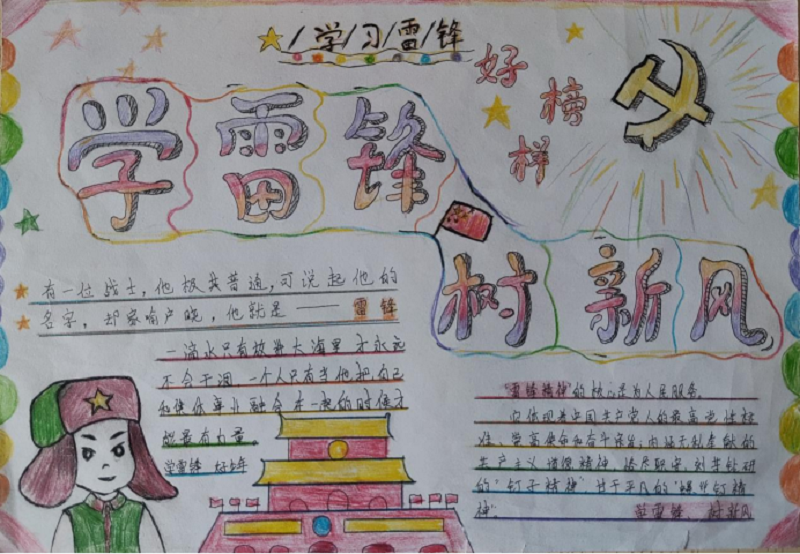 学习雷锋
好榜样
学雷锋
树新风
有一位战士，他极其普通，可说起他的
名字，却家喻户晓，他就是——雷锋
一滴水只有放进大海里才永远
不会干涸，一个人只有当他把自己
和集体事业融合在一起的时候才
能最有力量。
学雷锋 好少年
"雷锋精神"的核心是为人民服务。
它体现着中国共产党人的最高道德标
准、崇高使命和奋斗
共产主义道德精神
的"钉子精神" 甘于平凡的"螺丝钉精
神"。 学雷锋 树新风